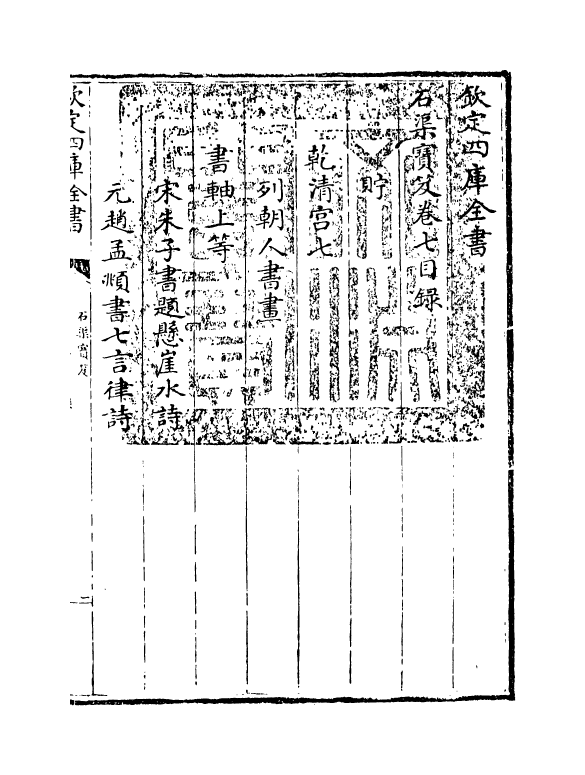 欽定四庫全書
石渠寶笈卷七目録
貯
乾清宫七
列朝人書畫
書軸上等
宋朱子書題懸崖水詩
元趙孟頫書七言律詩
欽定四庫全書
石渠寶笈
二